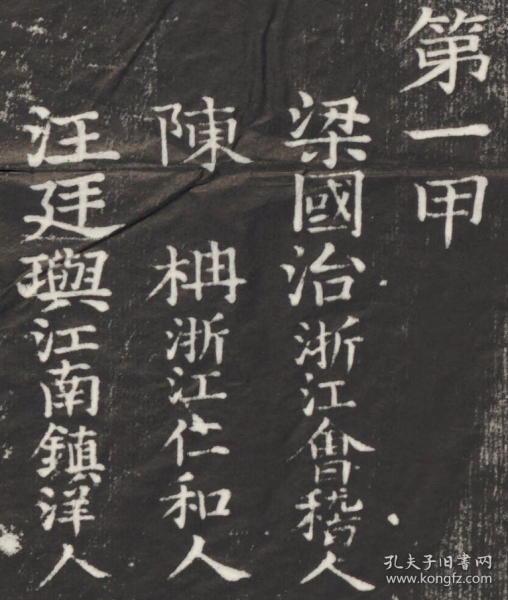 第一甲
梁國治浙江會稽人
陳柟浙江仁和人
汪廷璵江南鎮洋人
孔夫子旧書网
www.kongfz.com